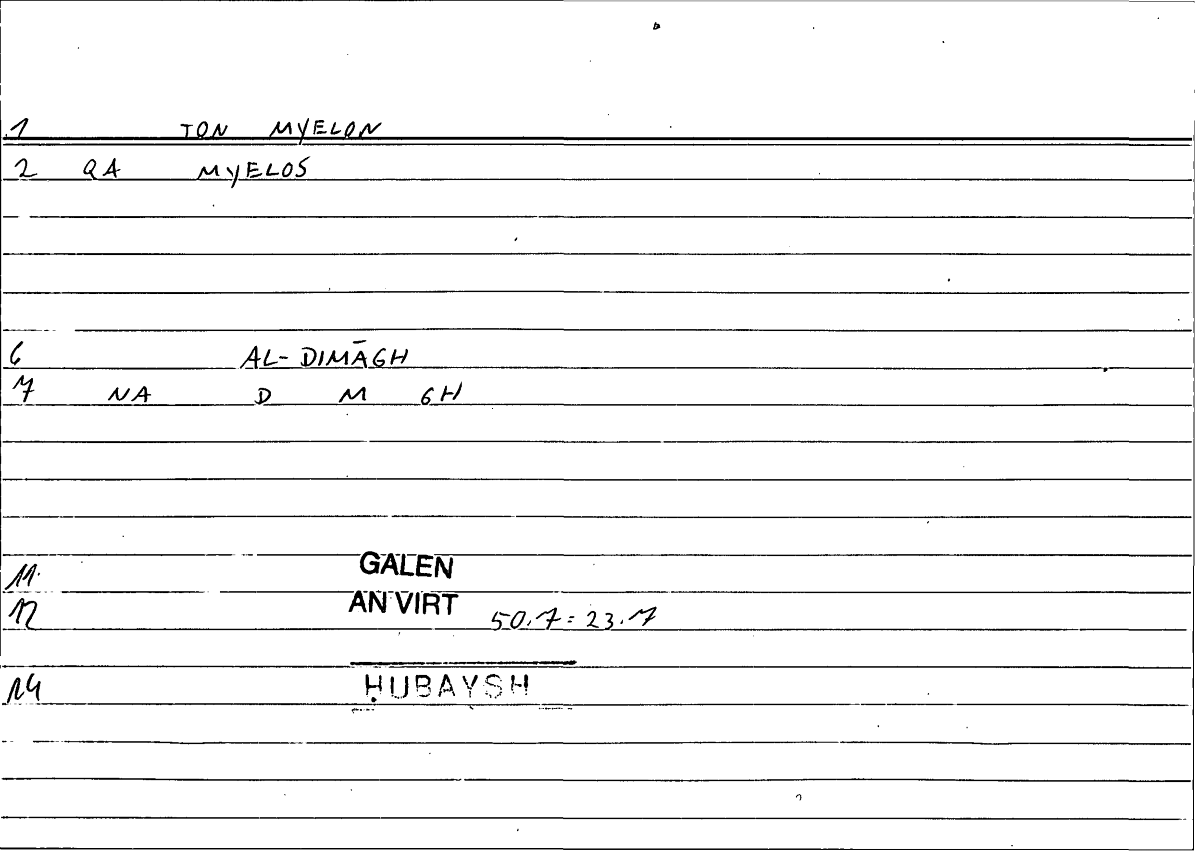 1 TON MYELON
2 QA MYELOS
6 AL-DIMĀGH
7 NA D M GH
11. GALEN
12 AN VIRT 50.7 = 23.7
14 ḤUBAYSH